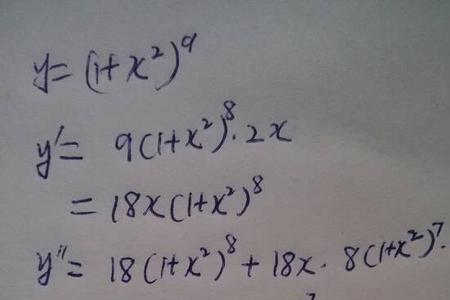 y = (1+x²)⁹
y' = 9(1+x²)⁸·2x
= 18x(1+x²)⁸
y'' = 18(1+x²)⁸ + 18x·8(1+x²)⁷·